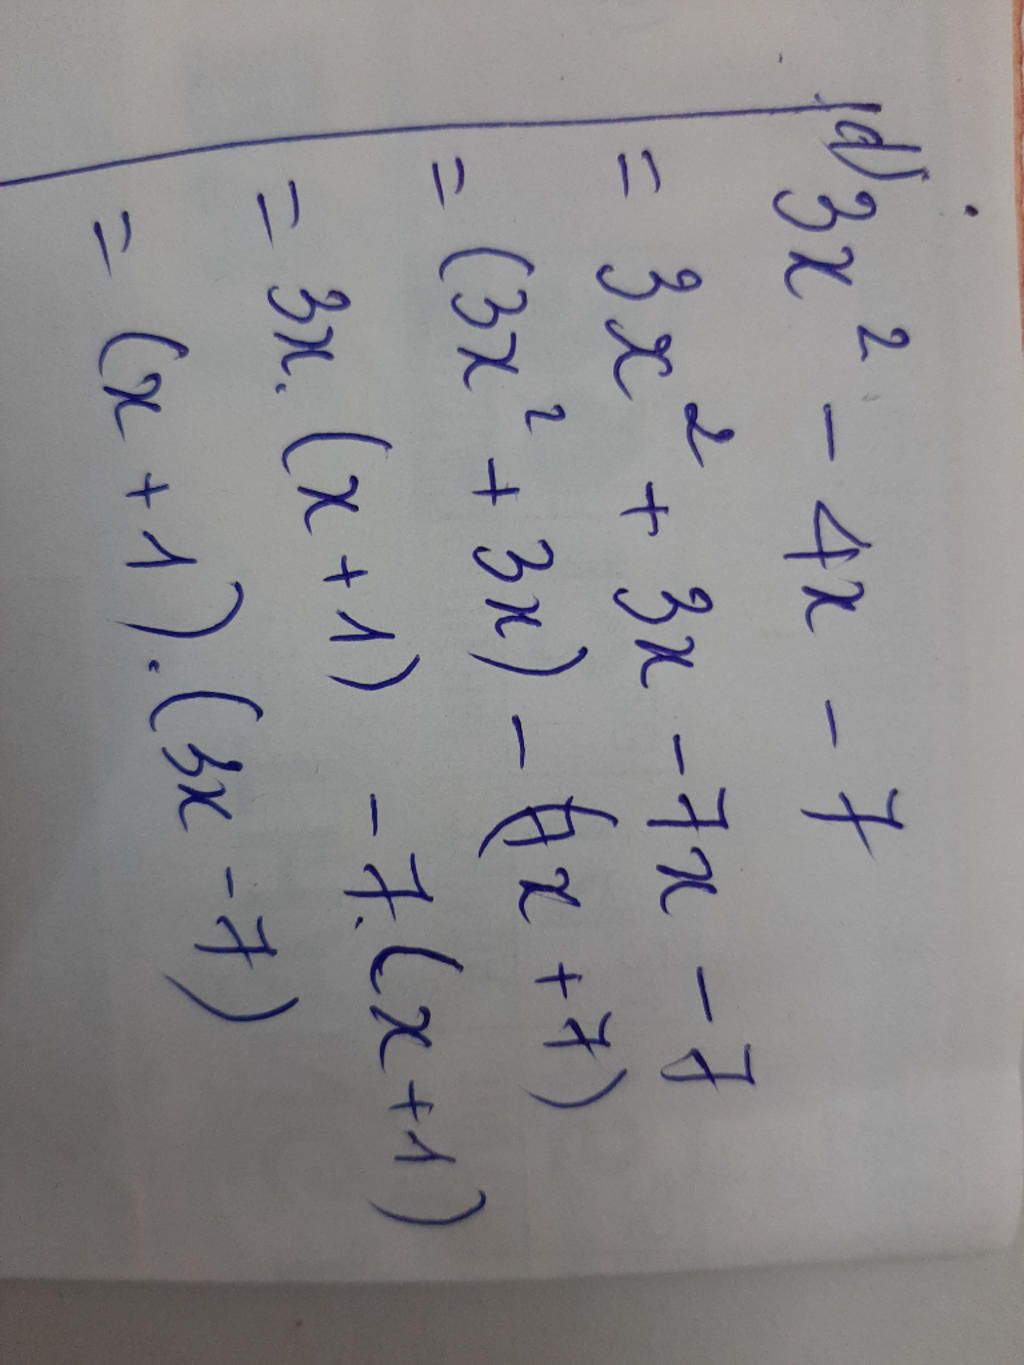 d) 3x² - 4x - 7
= 3x² + 3x - 7x - 7
= (3x² + 3x) - (7x + 7)
= 3x. (x + 1) - 7. (x + 1)
= (x + 1) . (3x - 7)